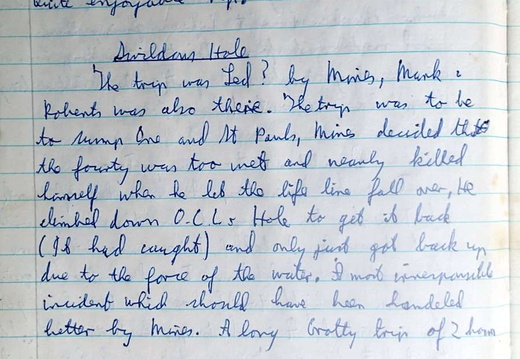 quite enjoyable
Swildons Hole
The trip was Led? by Mines, Mark &
Roberts was also there. The trip was to be
to sump One and St Pauls, Mines decided that
the fourty was too wet and nearly killed
himself when he let the life line fall over, He
climbed down O.C.L.s Hole to get it back
(It had caught) and only just got back up
due to the force of the water. A most irresponsible
incident which should have been handeled
better by Mines. A long Grotty trip of 2 hours